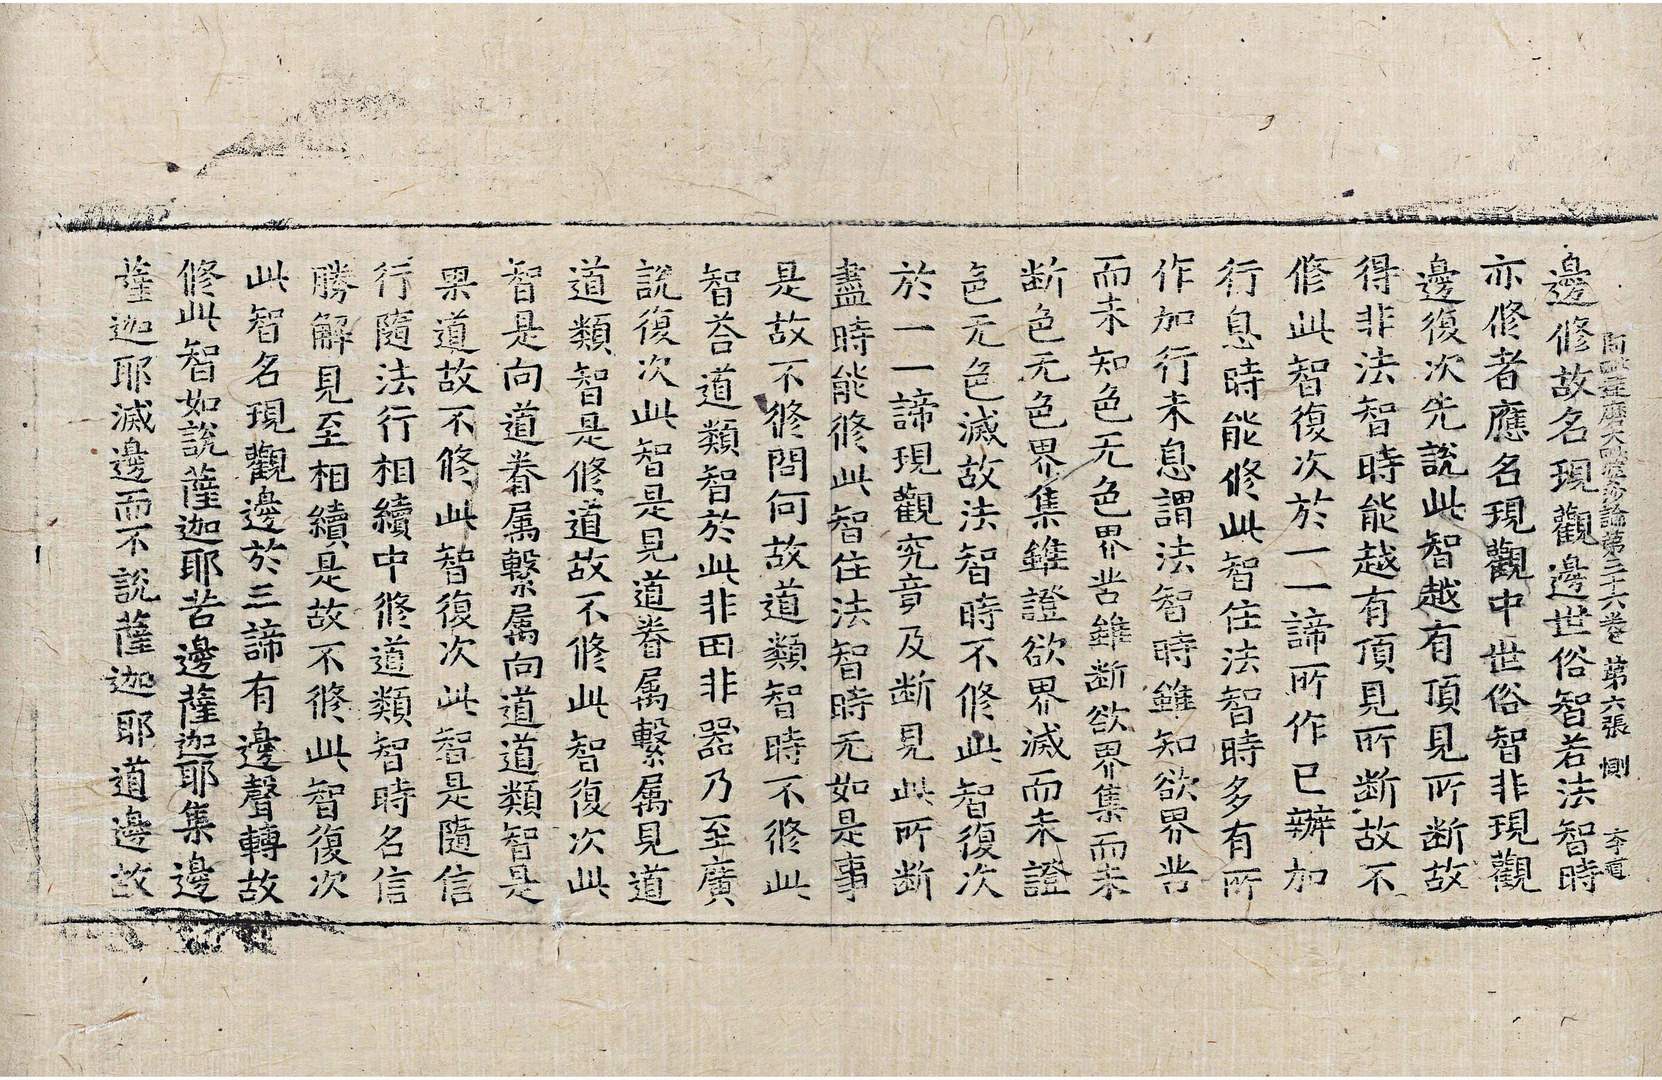 阿毗曇毗婆沙論第三十六卷 第六張 惻 本道
邊修故名現觀邊世俗智若法智時
亦修者應名現觀中世俗智非現觀
邊復次先說此智越有頂見所断故
得非法智時能越有頂見所断故不
修此智復次於一一諦所作已辦加
行息時能修此智住法智時多有所
作加行未息謂法智時雖知欲界苦
而未知色无色界苦雖断欲界集而未
断色无色界集雖證欲界滅而未證
色无色滅故法智時不修此智復次
於一一諦現觀究竟及断見此所断
盡時能修此智住法智時无如是事
是故不修問何故道類智時不修此
智荅道類智於此非田非器乃至廣
說復次此智是見道眷属繫属見道
道類智是修道故不修此智復次此
智是向道眷属繫属向道道類智是
果道故不修此智復次此智是隨信
行隨法行相續中修道類智時名信
勝解見至相續是故不修此智復次
此智名現觀邊於三諦有邊聲轉故
修此智如說薩迦耶苦邊薩迦耶集邊
薩迦耶滅邊而不說薩迦耶道邊故